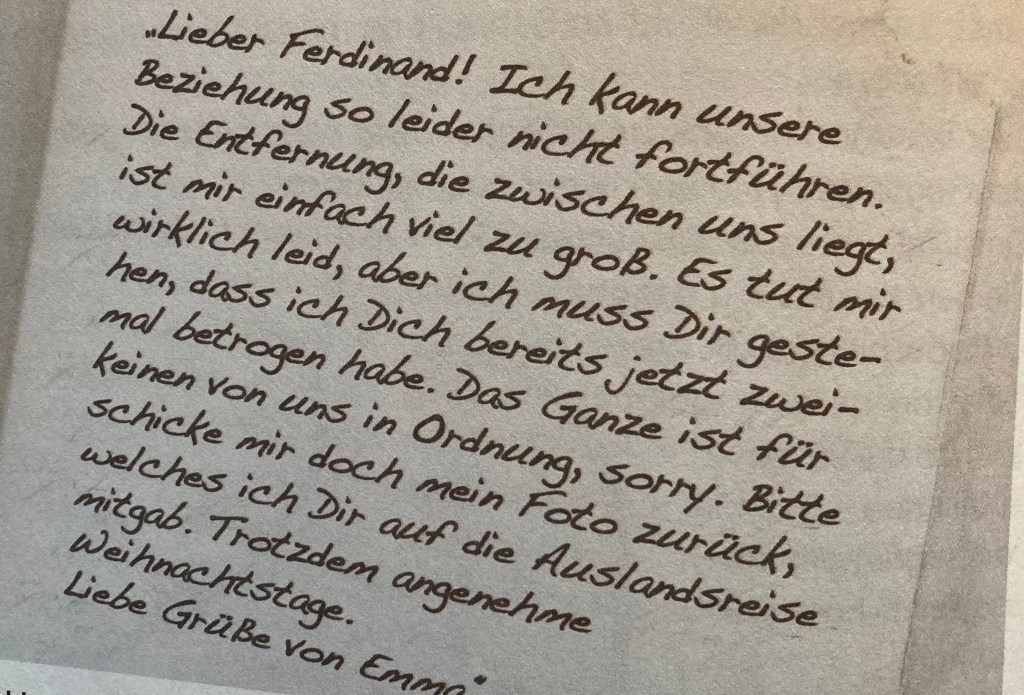 „Lieber Ferdinand! Ich kann unsere
Beziehung so leider nicht fortführen.
Die Entfernung, die zwischen uns liegt,
ist mir einfach viel zu groß. Es tut mir
wirklich leid, aber ich muss Dir geste-
hen, dass ich Dich bereits jetzt zwei-
mal betrogen habe. Das Ganze ist für
keinen von uns in Ordnung, sorry. Bitte
schicke mir doch mein Foto zurück,
welches ich Dir auf die Auslandsreise
mitgab. Trotzdem angenehme
Weihnachtstage.
Liebe Grüße von Emma“